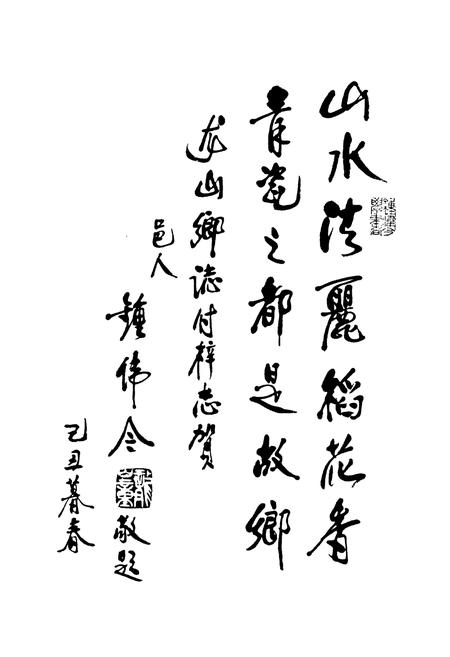 山水清麗稻花香
青瓷之都是故鄉
龙山鄉誌付梓志賀
邑人
鍾伟今 敬題
己丑暮春